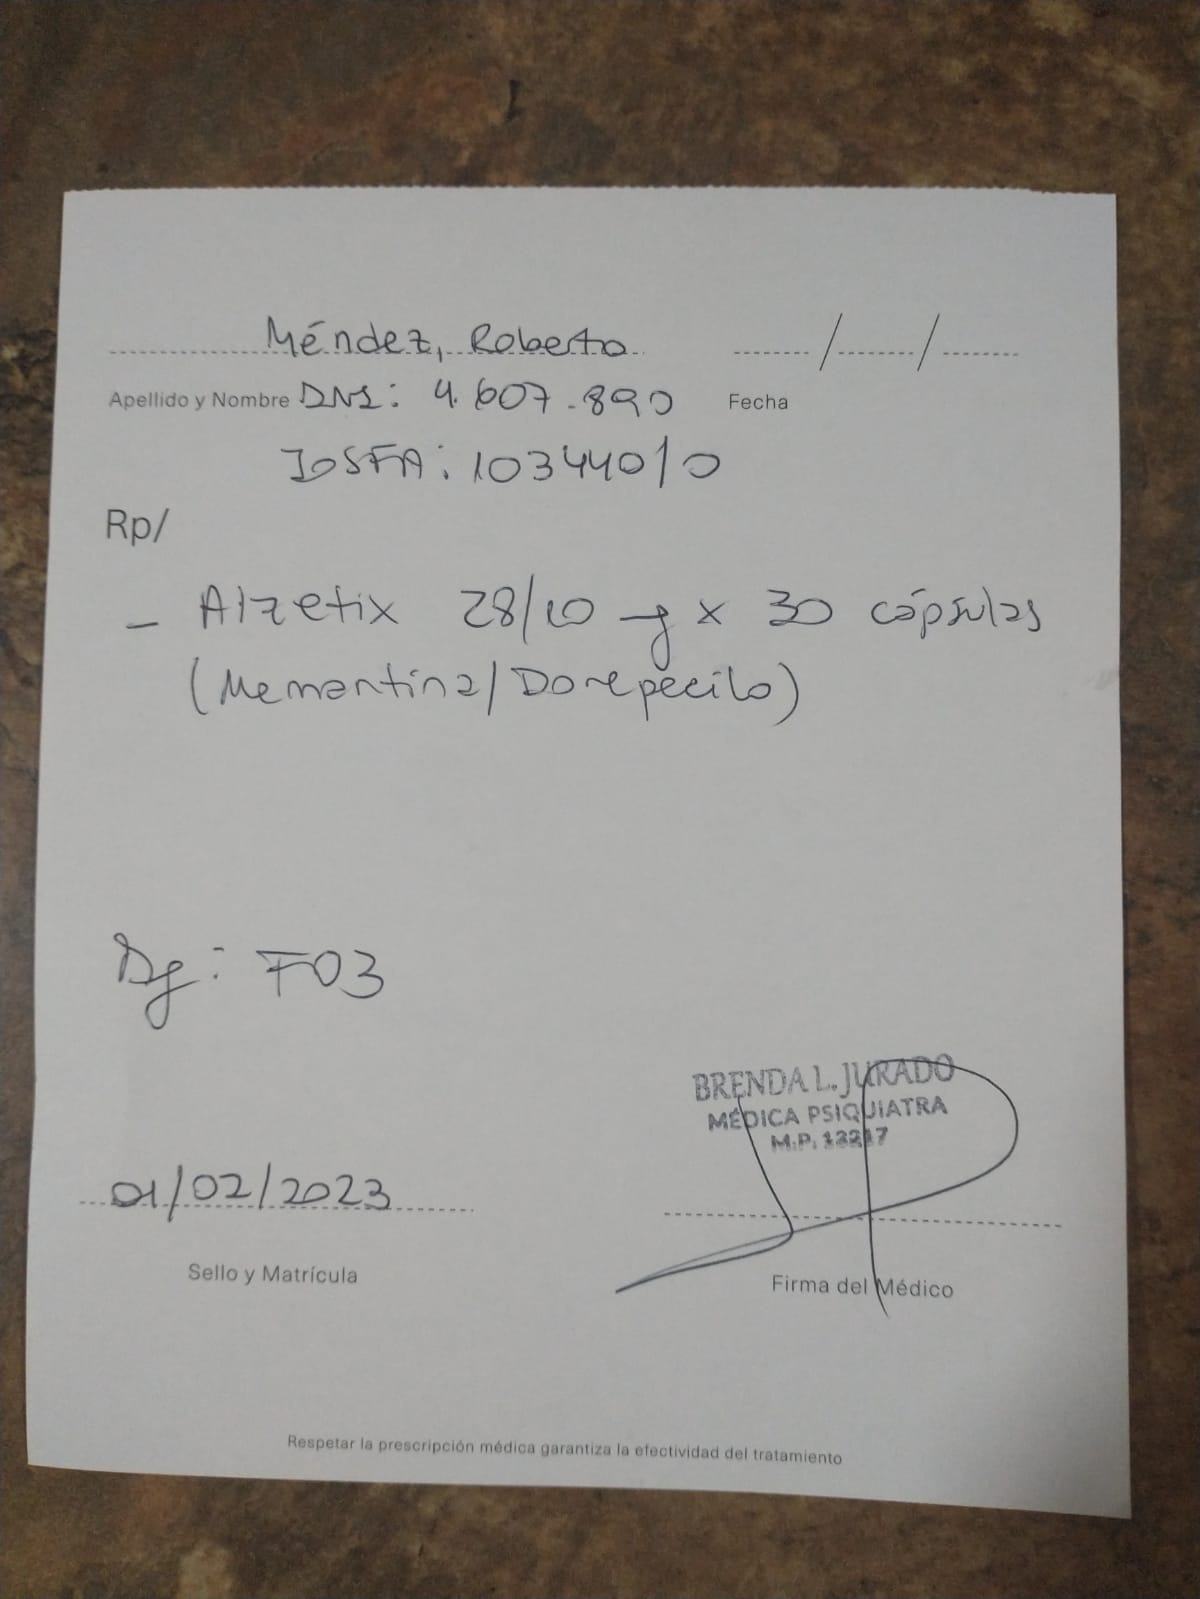 Méndez, Roberto
Apellido y Nombre DNI: 4.607.890 Fecha
IOSFA: 1034401/0
Rp/
- Alzetix 28/10 mg x 30 cápsulas
(Memantina/Donepecilo)
Dg: F03
BRENDA L. JURADO
MÉDICA PSIQUIATRA
M.P. 13217
01/02/2023
Sello y Matrícula
Firma del Médico
Respetar la prescripción médica garantiza la efectividad del tratamiento